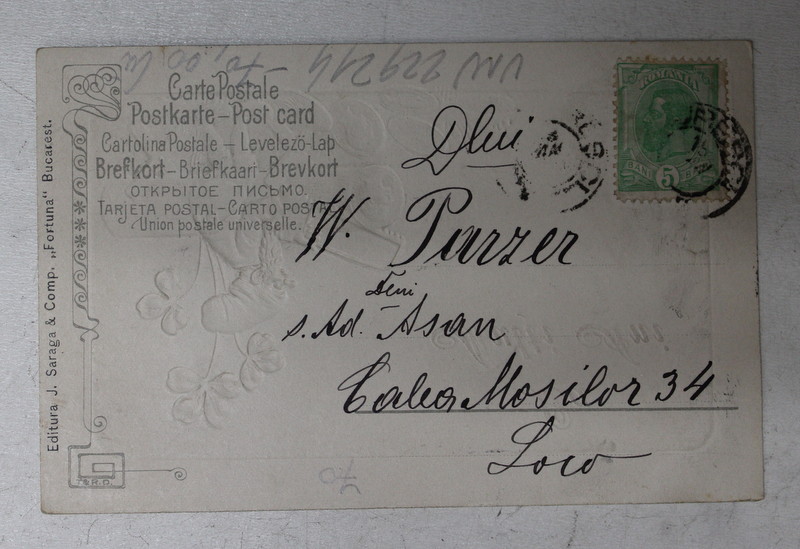 Carte Postale
Postkarte – Post card
Cartolina Postale – Levelező-Lap
Brefkort – Briefkaart – Brevkort
ОТКРЫТОЕ ПИСЬМО.
TARJETA POSTAL – CARTO POSTAL
Union postale universelle.
Editura J. Saraga & Comp. „Fortuna" Bucarest.
ROMANIA
BANI 5 BANI
Dlui
W. Parzer
s. Ad. Asan
Calea Mosilor 34
Loco
70